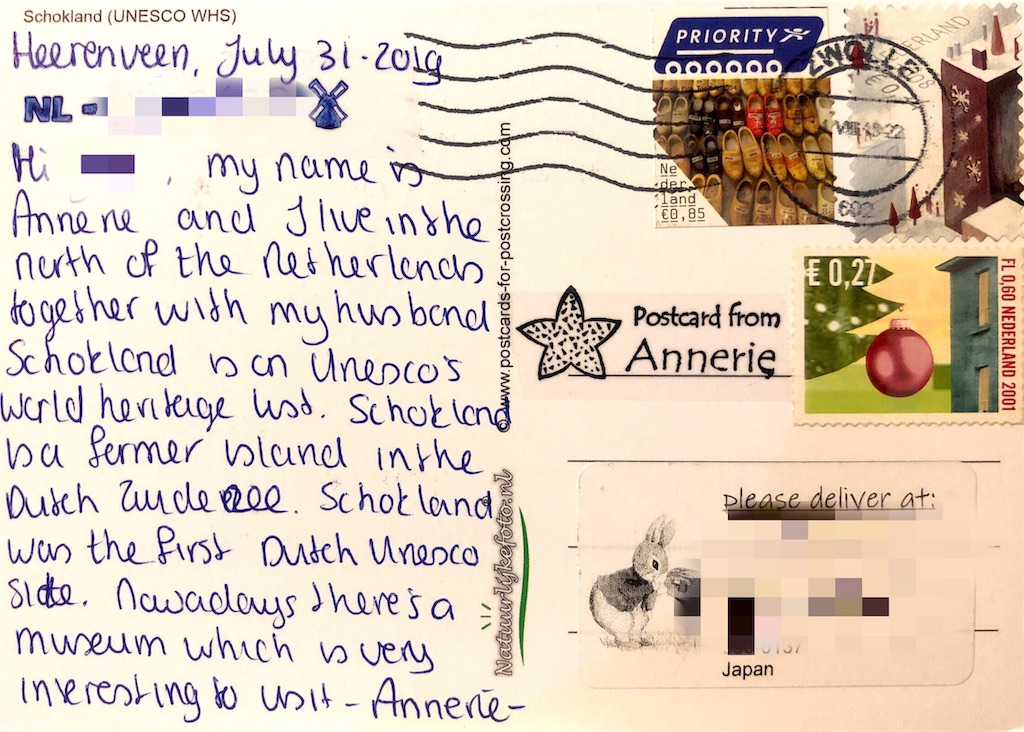 Schokland (UNESCO WHS)
Heerenveen, July 31-2019
NL-
Hi , my name is
Annerie and I live in the
north of the Netherlands
together with my husband
Schokland is on Unesco's
world heritage list. Schokland
is a former island in the
Dutch Zuiderzee. Schokland
was the first Dutch Unesco
site. Nowadays there's a
museum which is very
interesting to visit - Annerie -
© www.postcards-for-postcrossing.com
Natuurlijkefoto.nl
PRIORITY
Ne
der
land
€0,85
NEDERLAND
ZWOLLE
€ 0,27
FL 0,60 NEDERLAND 2001
Postcard from
Annerie
please deliver at:
Japan